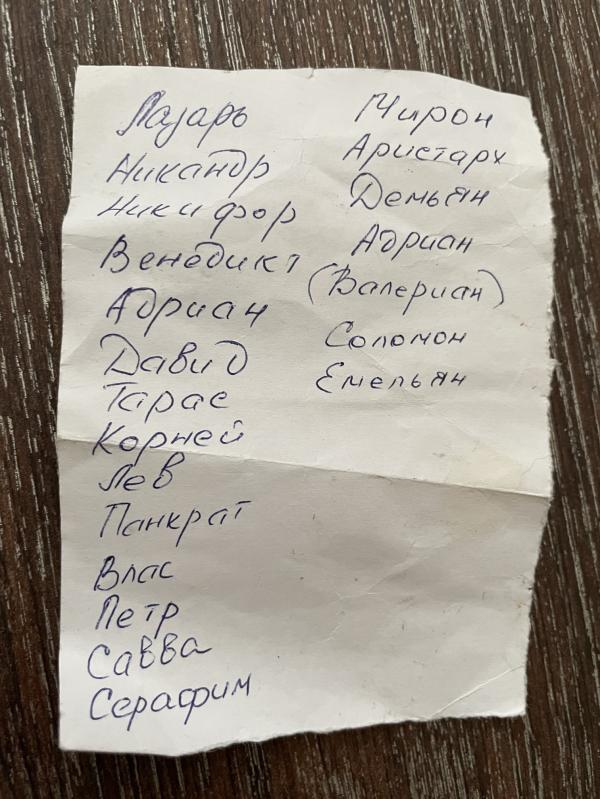 Лазарь
Никандр
Никифор
Венедикт
Адриан
Давид
Тарас
Корней
Лев
Панкрат
Влас
Петр
Савва
Серафим
Мирон
Аристарх
Демьян
Адриан
(Валериан)
Соломон
Емельян